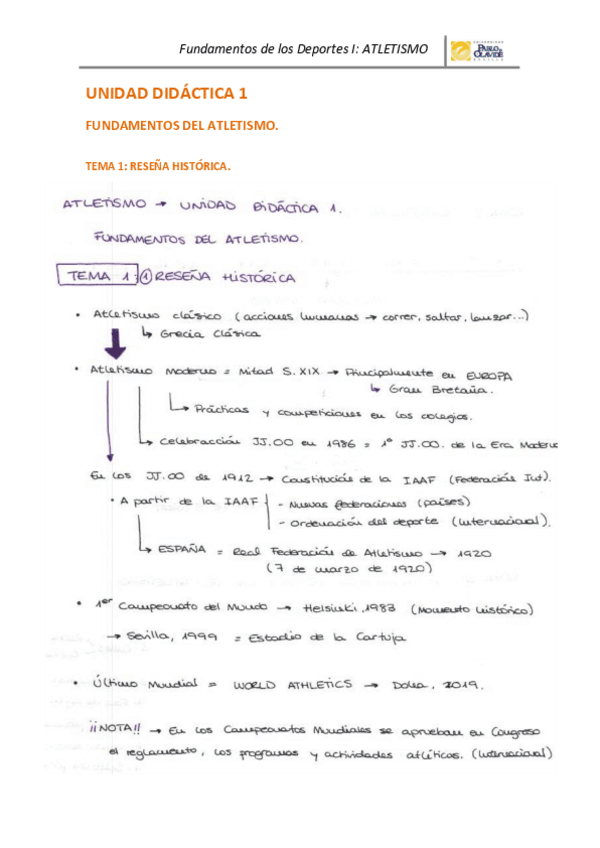 Fundamentos de los Deportes I: ATLETISMO
UNIVERSIDAD
PABLO DE OLAVIDE
SEVILLA
UNIDAD DIDÁCTICA 1
FUNDAMENTOS DEL ATLETISMO.
TEMA 1: RESEÑA HISTÓRICA.
ATLETISMO → UNIDAD DIDÁCTICA 1.
FUNDAMENTOS DEL ATLETISMO.
TEMA 1: ① RESEÑA HISTÓRICA
• Atletismo clásico (acciones humanas → correr, saltar, lanzar...)
↳ Grecia Clásica
• Atletismo Moderno = Mitad S.XIX → Principalmente en EUROPA
↳ Gran Bretaña.
↳ Prácticas y competiciones en los colegios.
↳ Celebracción JJ.OO en 1986 = 1º JJ.OO. de la Era Moderna
En los JJ.OO de 1912 → Constitución de la IAAF (Federación Int).
• A partir de la IAAF - Nuevas federaciones (países)
- Ordenación del deporte (Internacional).
↳ ESPAÑA = Real Federación de Atletismo → 1920
(7 de marzo de 1920)
• 1er Campeonato del Mundo → Helsinki, 1983 (Momento histórico)
→ Sevilla, 1999 = Estadio de la Cartuja
• Último Mundial = WORLD ATHLETICS → Doha, 2019.
¡¡NOTA!! → En los Campeonatos Mundiales se aprueban en Congreso
el reglamento, los programas y actividades atléticas. (Internacional)